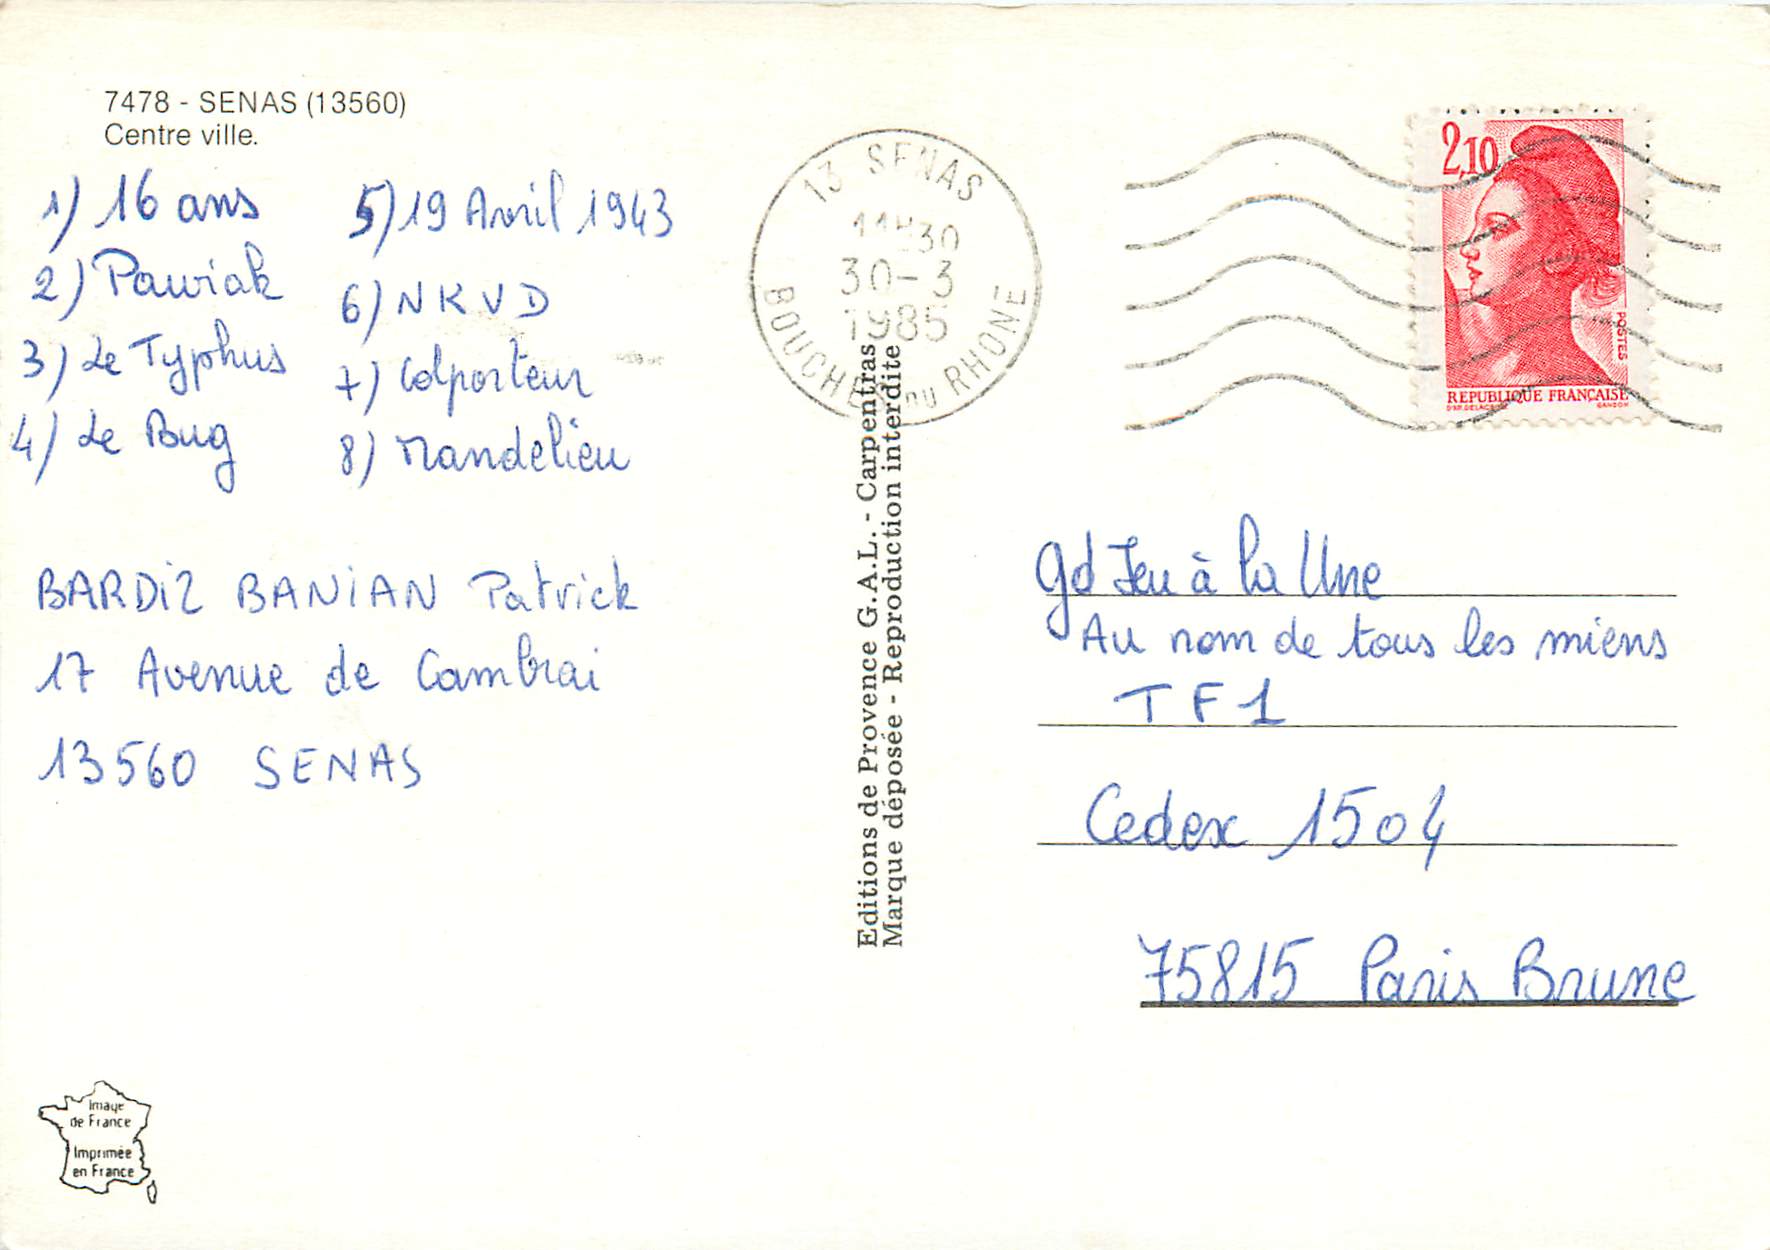 7478 - SENAS (13560)
Centre ville.
1) 16 ans
2) Pawiak
3) Le Typhus
4) Le Bug
5) 19 Avril 1943
6) NKVD
7) Colporteur
8) Mandelieu
BARDIZ BANIAN Patrick
17 Avenue de Cambrai
13560 SENAS
Image
de France
Imprimée
en France
Editions de Provence G.A.L. - Carpentras
Marque déposée - Reproduction interdite
13 SENAS
11H30
30-3
1985
BOUCHES DU RHONE
2,10
POSTES
REPUBLIQUE FRANÇAISE
GANDON
gd Jeu à la Une
Au nom de tous les miens
TF1
Cedex 1504
75815 Paris Brune